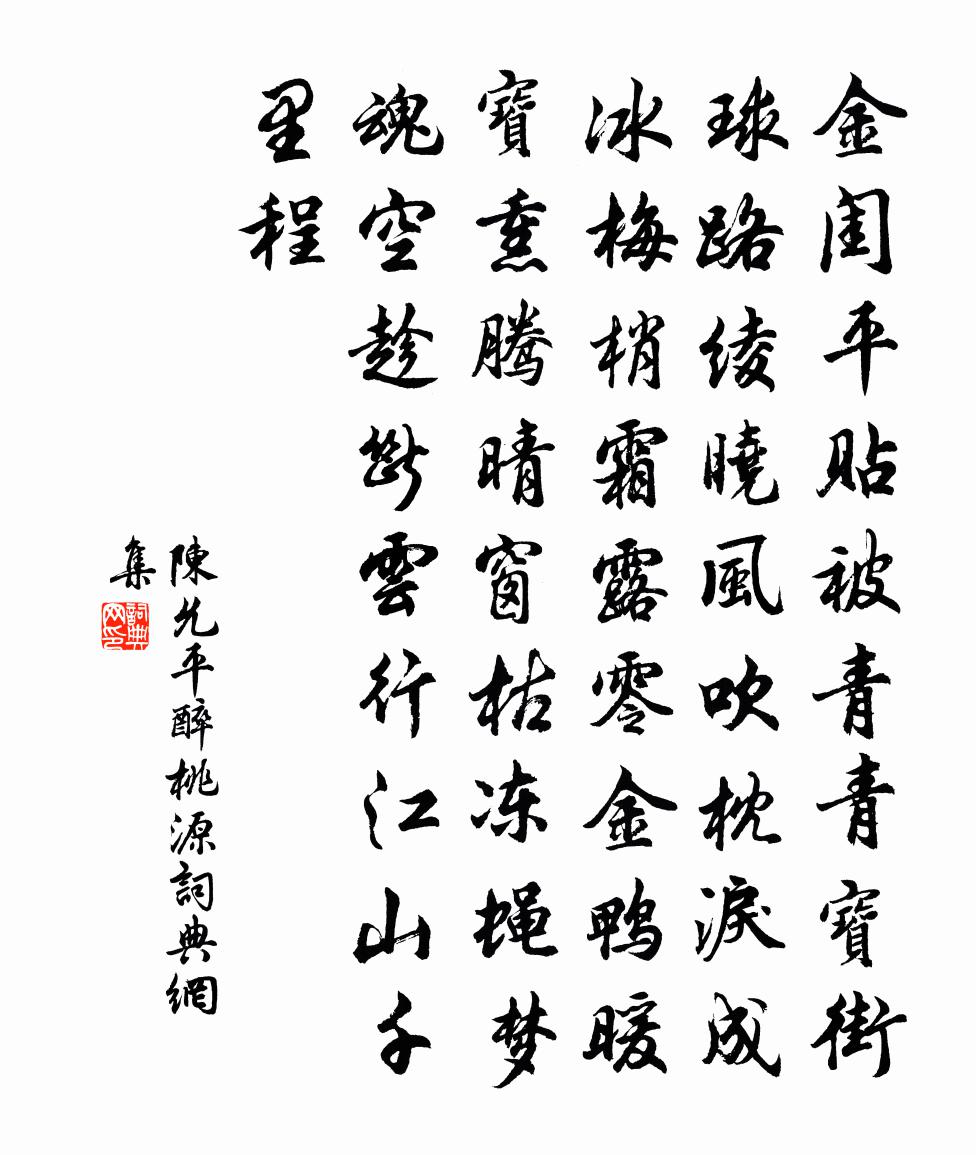 金閨平貼被青青寶街
球路綾曉風吹枕淚成
冰梅梢霜露零金鴨暖
寶熏騰晴窗枯冻蝇梦
魂空趁斷雲行江山千
里程
陳允平醉桃源詞典網
集
詞典网印